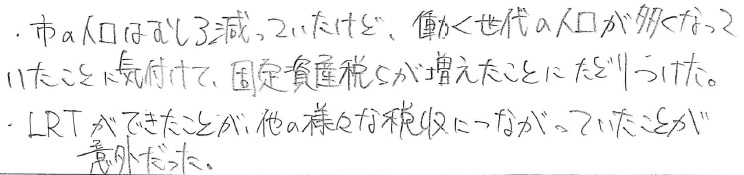 ・市の人口はむしろ減っていたけど、働く世代の人口が多くなって
いたことに気付けて、固定資産税らが増えたことにたどりつけた。
・LRTができたことが、他の様々な税収につながっていたことが
意外だった。